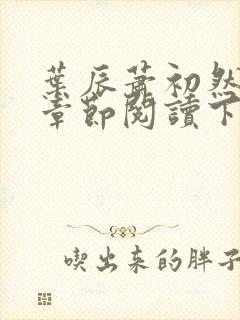 葉辰蕭初然
章節閱讀下
喫出來的胖子